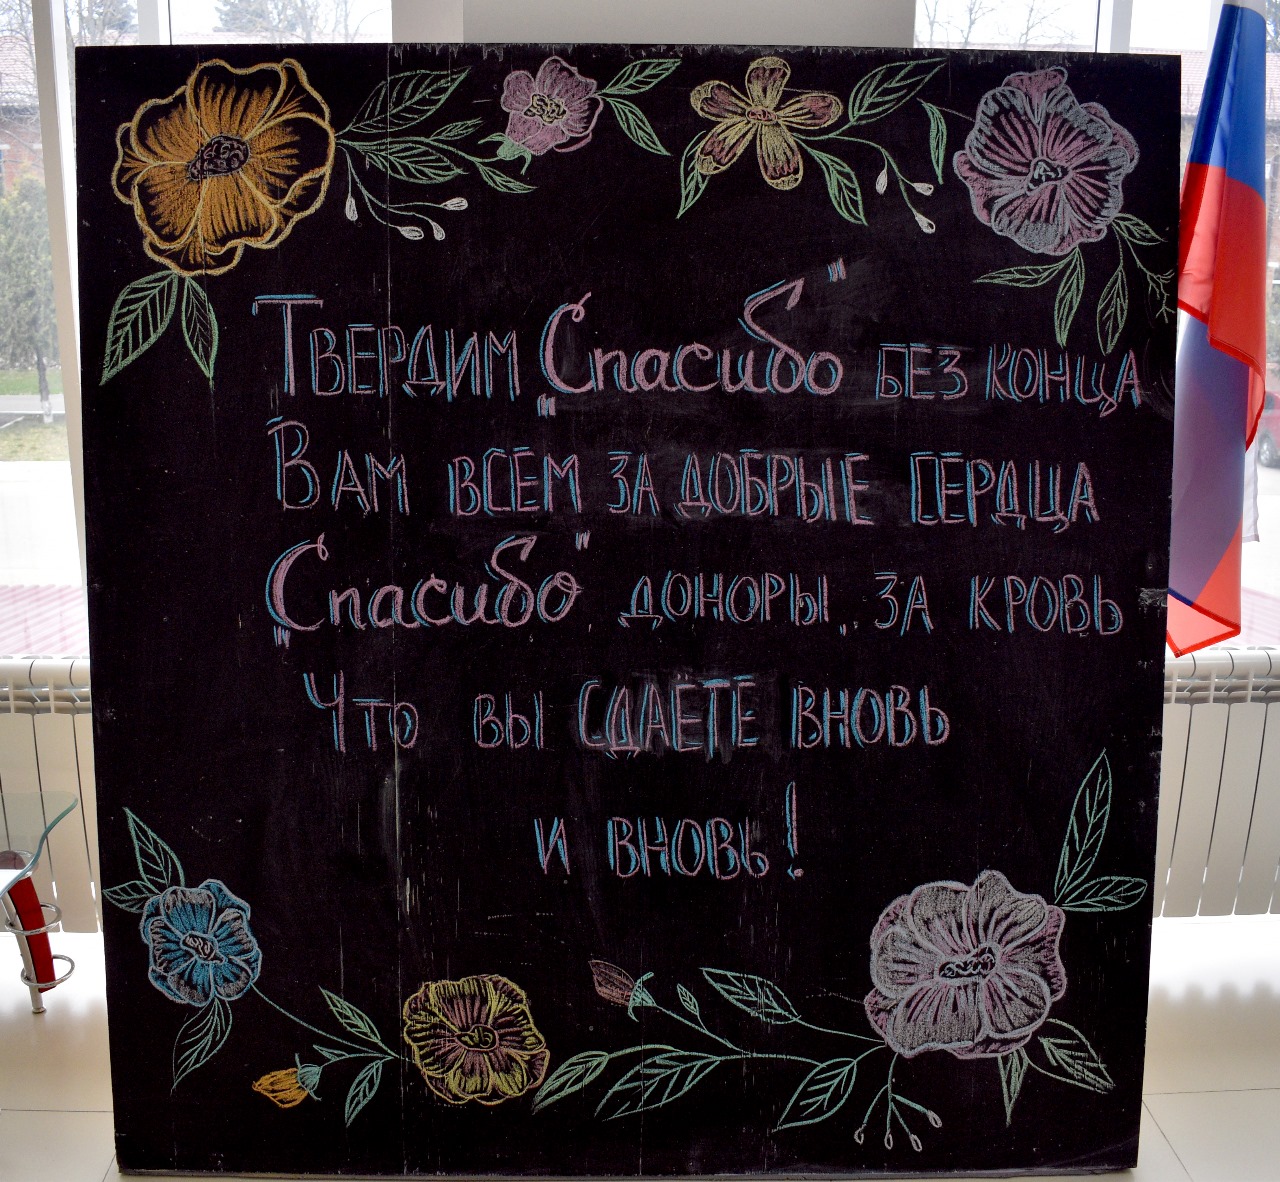 Твердим "Спасибо" без конца
Вам всем за добрые сердца
"Спасибо" доноры, за кровь
Что вы сдаёте вновь
и вновь!